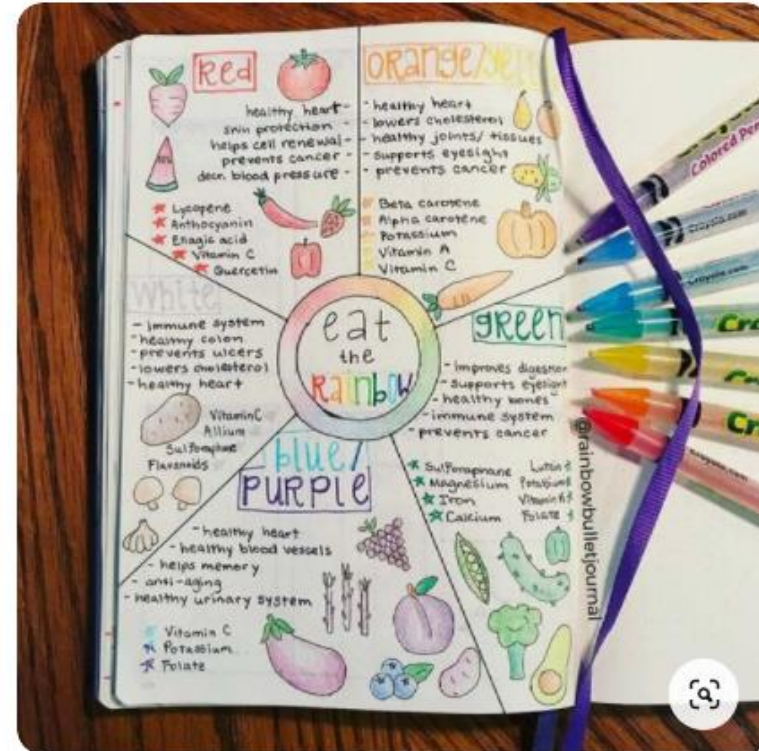 Red
healthy heart-
skin protection -
helps cell renewal-
prevents cancer -
decr. blood pressure -
Lycopene
Anthocyanin
Enagic acid
Vitamin C
Quercetin
ORANGE/
- healthy heart
- lowers cholesterol
- healthy joints/ tissues
- supports eyesight
- prevents cancer
Beta carotene
Alpha carotene
Potassium
Vitamin A
Vitamin C
White
- immune system
- healthy colon
- prevents ulcers
- lowers cholesterol
- healthy heart
Vitamin C
Allium
Flavanoids
eat
the
Rainbow
green
- improves digestion
- supports eyesight
- healthy bones
- immune system
- prevents cancer
Sulforaphane Lutein
Magnesium Potassium
Iron Vitamin
Calcium Folate
blue/
PURPLE
- healthy heart
- healthy blood vessels
- helps memory
- anti-aging
- healthy urinary system
Vitamin C
Potassium
Folate
@rainbowbulletjournal
Colored
Crayola.com
Crayola.com
Cra
Cr
Crayola.com